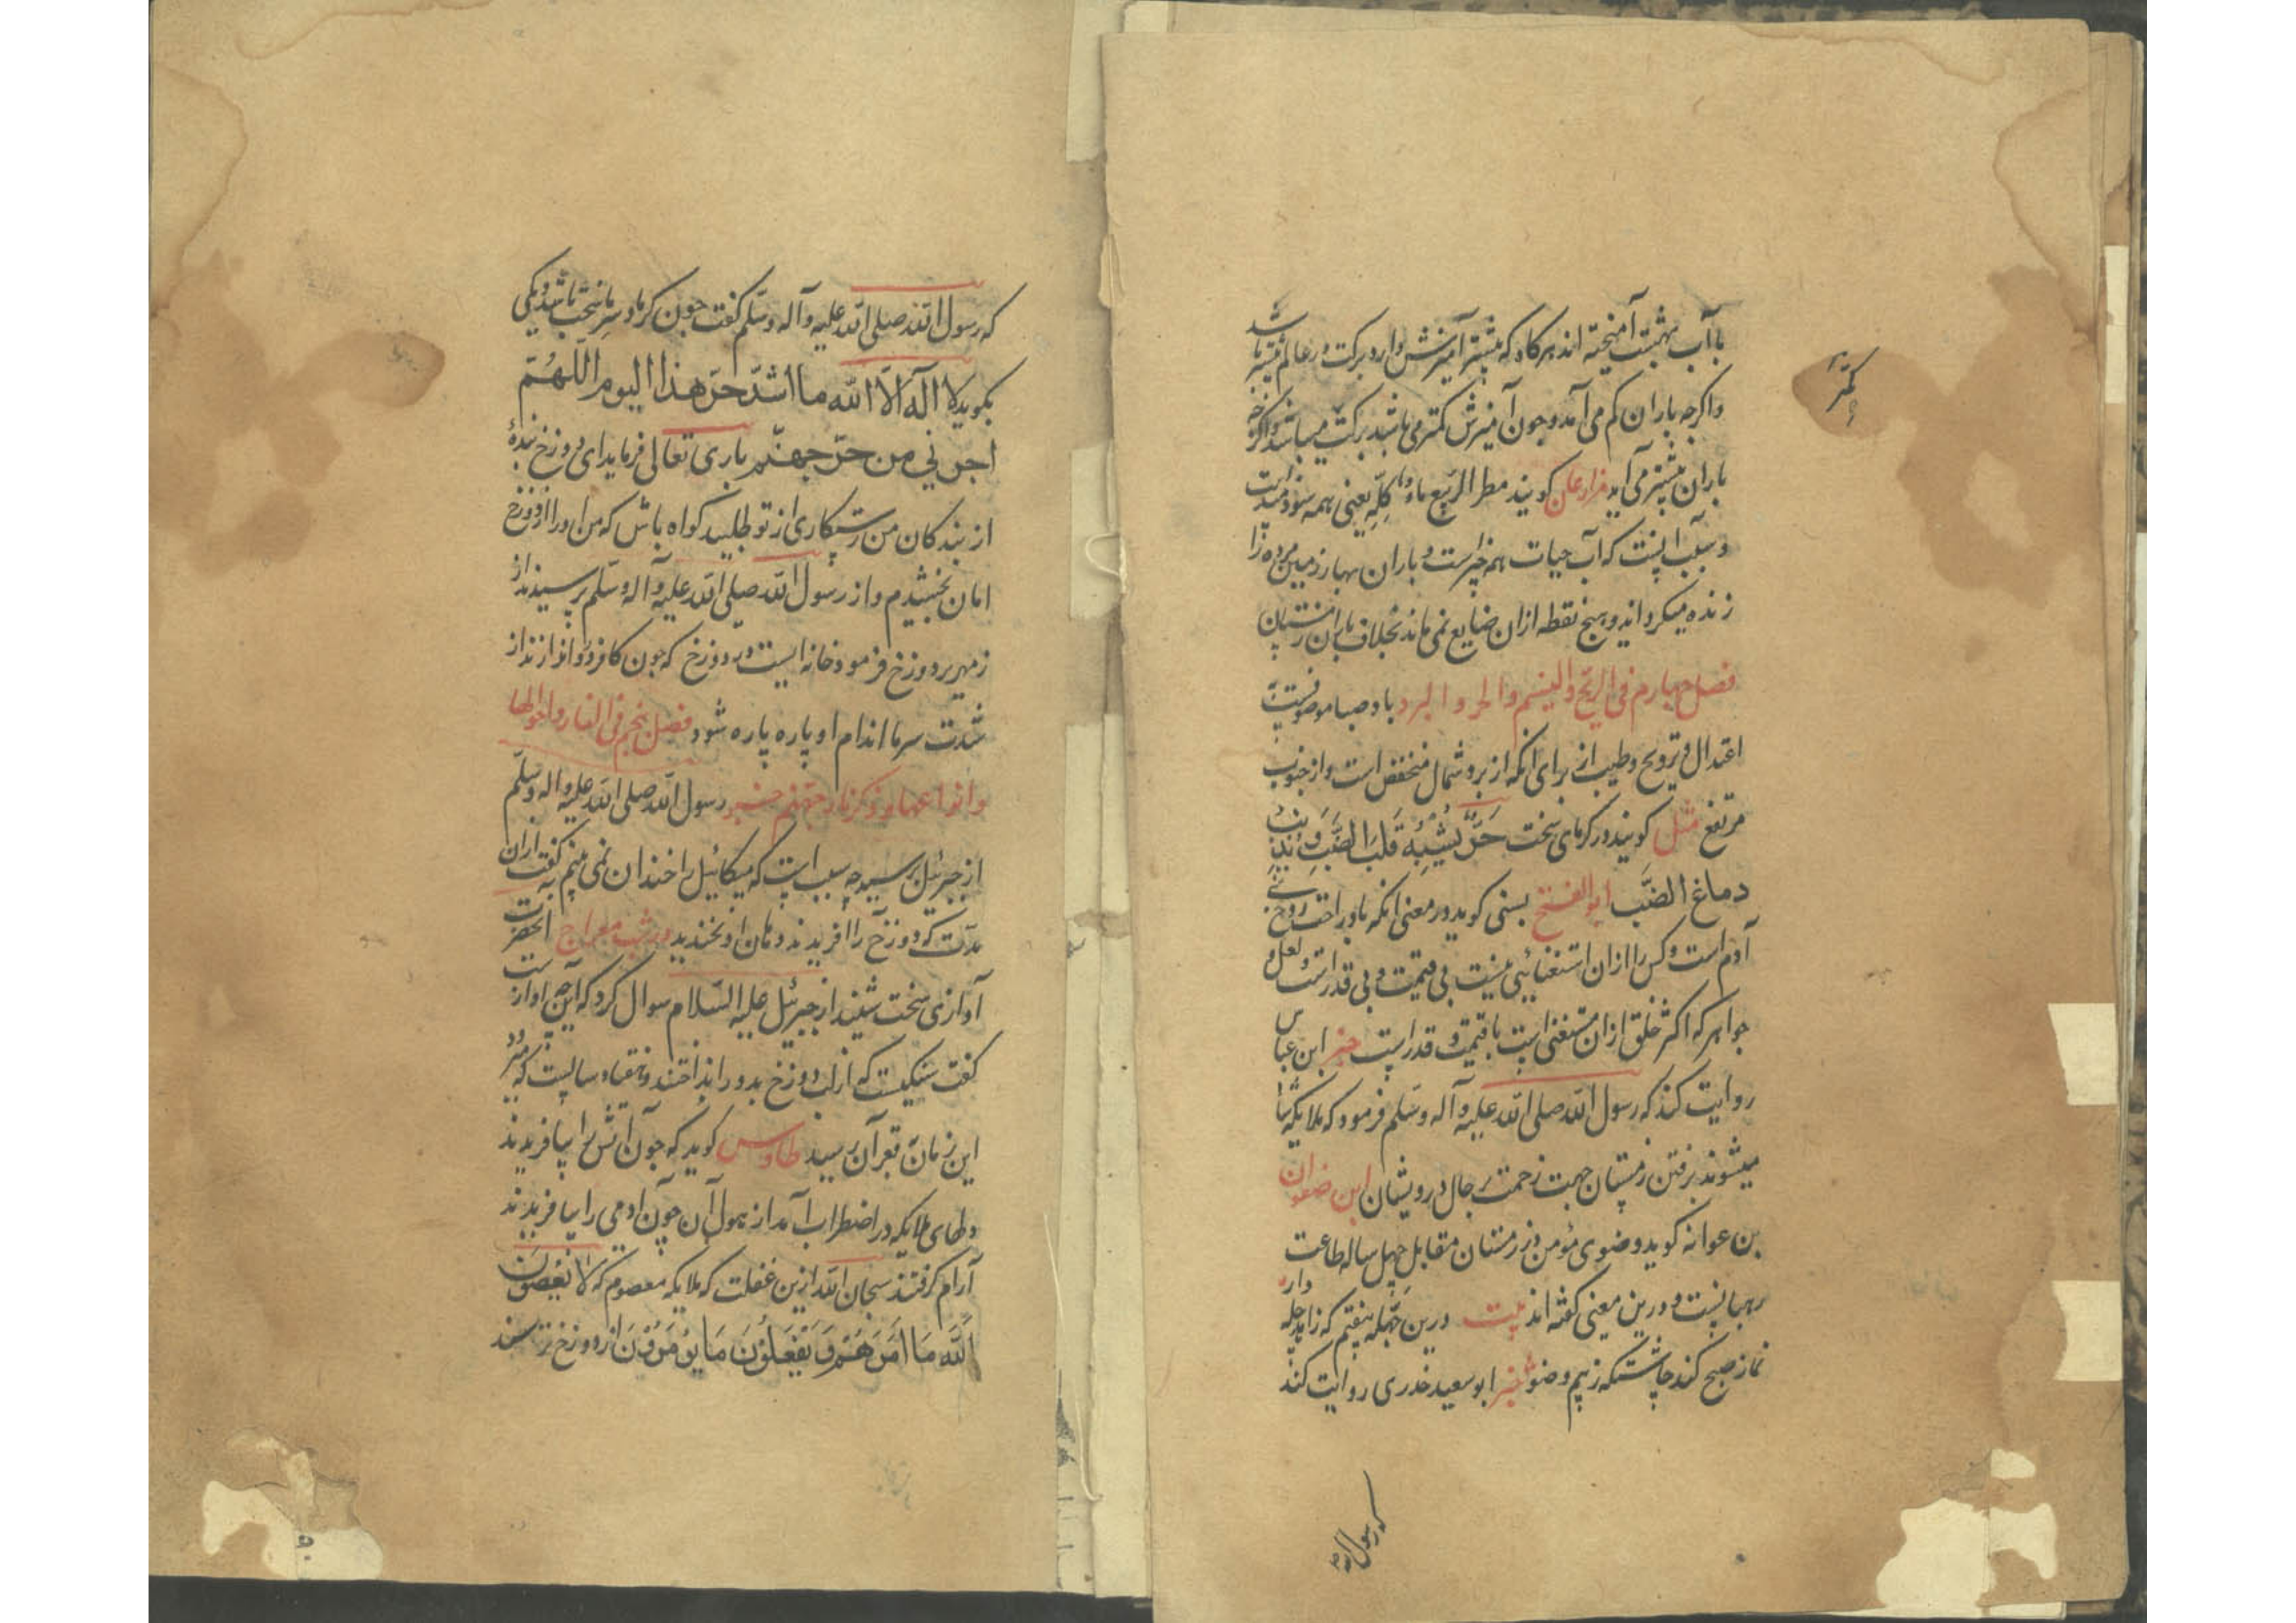 با آب بهشت آمیخته اند هرگاه که بیشتر آمیزش دارد برکت در عالم بیشتر باشد
واکرچه باران کم می آمد و چون آمیزش کمتر می باشد برکت میباشد واکرچه
باران بیشتر می آید کویند مطر الربیع ماء کلّه یعنی همه سودمند است
و سبب اینست که آب حیات همه چیز است و باران بهار زمین مرده را
زنده میکرداند و هیچ نقطه ازان ضایع نمی ماند بخلاف باران زمستان
فصل چهارم فی الریح والنسیم والحر والبرد باد صبا موصوفست به
اعتدال و ترویح وطیب از برای انکه از برد شمال منخفض است و از جنوب
مرتفع مثل کویند در کرمای سخت حَرٌّ یُشْبِهُ قَلبَ الضَّبِّ وَ یُذِیبُ
دماغ الضَّب ابوالفتح بستی کوید در معنی انکه باد راحت روح بنی
آدم است وکس را ازان استغنائی نیست بی قیمت و بی قدر است و لعل و
جواهر که اکثر خلق ازان مستغنی است با قیمت و قدر است خبر ابن عباس
روایت کند که رسول اللّه صلی اللّه علیه وآله وسلم فرمود که ملایکه شاد
میشوند برفتن زمستان جهت زحمت بر حال درویشان ابن صفوان
بن عوانه کوید وضوی مؤمن در زمستان مقابل چهل ساله طاعت
رهبانیست و درین معنی کفته اند بیت درین چلّه نیفتم که زاهد چله وار
نماز صبح کند چاشتکه ز بیم وضو خبر ابو سعید خدری روایت کند
کمتر
که رسول اللّه
که رسول اللّه صلی اللّه علیه وآله وسلم کفت چون کرما و سرما سخت باشد و یکی
بکوید لا اله الّا اللّه ما اشدّ حرّ هذا الیوم اللّهُمّ
اجرنی من حرّ جهنّم باری تعالی فرماید ای دوزخ بندهٔ
از بندکان من رستکاری از تو طلبید کواه باش که من او را از دوزخ
امان بخشیدم و از رسول اللّه صلی اللّه علیه وآله وسلم پرسیدند از
زمهریر دوزخ فرمود خانه ایست در دوزخ که چون کافر در اندازند از
شدت سرما اندام او پاره پاره شود فصل پنجم فی النار واحوالها
وانواعها و ذکر نار جهنم خبر رسول اللّه صلی اللّه علیه واله وسلّم
از جبرئیل پرسید چه سبب است که میکائیل را خندان نمی بینم کفت ازان
مدت که دوزخ را افریدند دهان او نخندید در شب معراج آنحضرت
آوازی سخت شنید از جبرئیل علیه السّلام سوال کرد که این چه آواز است
کفت سنکیست که از لب دوزخ بدور انداختند و هفتاد سالیست که میرود
این زمان بقعر آن رسید طاوس کوید که چون آتش را بیافریدند
دلهای ملایکه در اضطراب آمد از هول آن چون ادمی را بیافریدند
آرام کرفتند سبحان اللّه ازین غفلت که ملایکه معصوم که لا یَعصُونَ
اللّٰهَ مَا اَمَرَهُمْ وَ یَفْعَلُوْنَ مَا یُؤْمَرُوْنَ از دوزخ ترسند